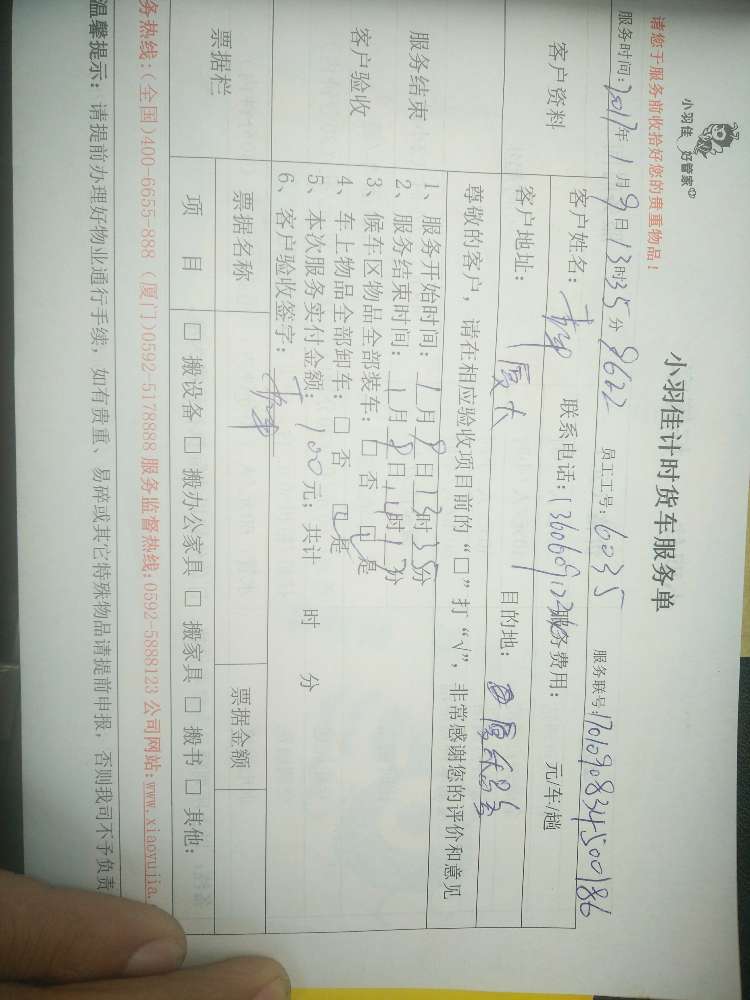 小羽佳 好管家
小羽佳计时货车服务单
请您于服务前收拾好您的贵重物品！
服务时间：2017年1月9日13时35分 8622 员工工号：6035 服务联号：1701090834500186
客户资料
客户姓名： 联系电话： 服务费用： 元/车/趟
客户地址：厦大 目的地：
服务结束
客户验收
尊敬的客户，请在相应验收项目前的“□”打“√”，非常感谢您的评价和意见
1、服务开始时间：1月9日13时35分
2、服务结束时间：1月9日14时13分
3、候车区物品全部装车：□ 否 □ 是
4、车上物品全部卸车：□ 否 □ 是
5、本次服务实付金额：100元；共计 时 分
6、客户验收签字：
票据栏
票据名称 票据金额
项 目 □ 搬设备 □ 搬办公家具 □ 搬家具 □ 搬书 □ 其他：
务热线：(全国)400-6655-888 (厦门)0592-5178888 服务监督热线:0592-5888123 公司网站:www.xiaoyujia.
温馨提示：请提前办理好物业通行手续，如有贵重、易碎或其它特殊物品请提前申报，否则我司不予负责